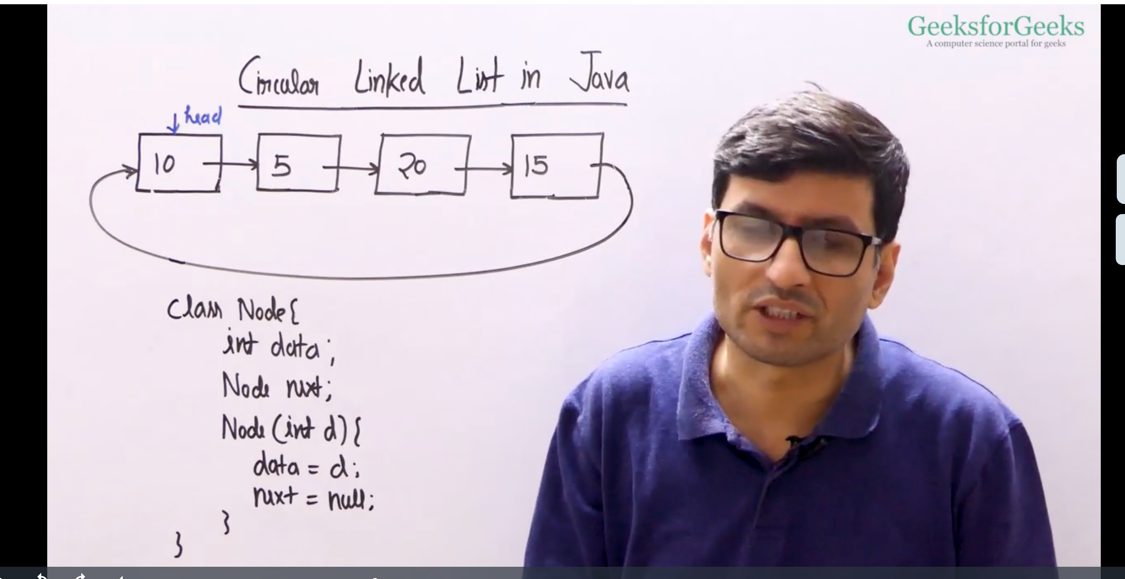 GeeksforGeeks
A computer science portal for geeks
Circular Linked List in Java
head
10 5 20 15
class Node{
int data;
Node next;
Node (int d){
data = d;
next = null;
}
}